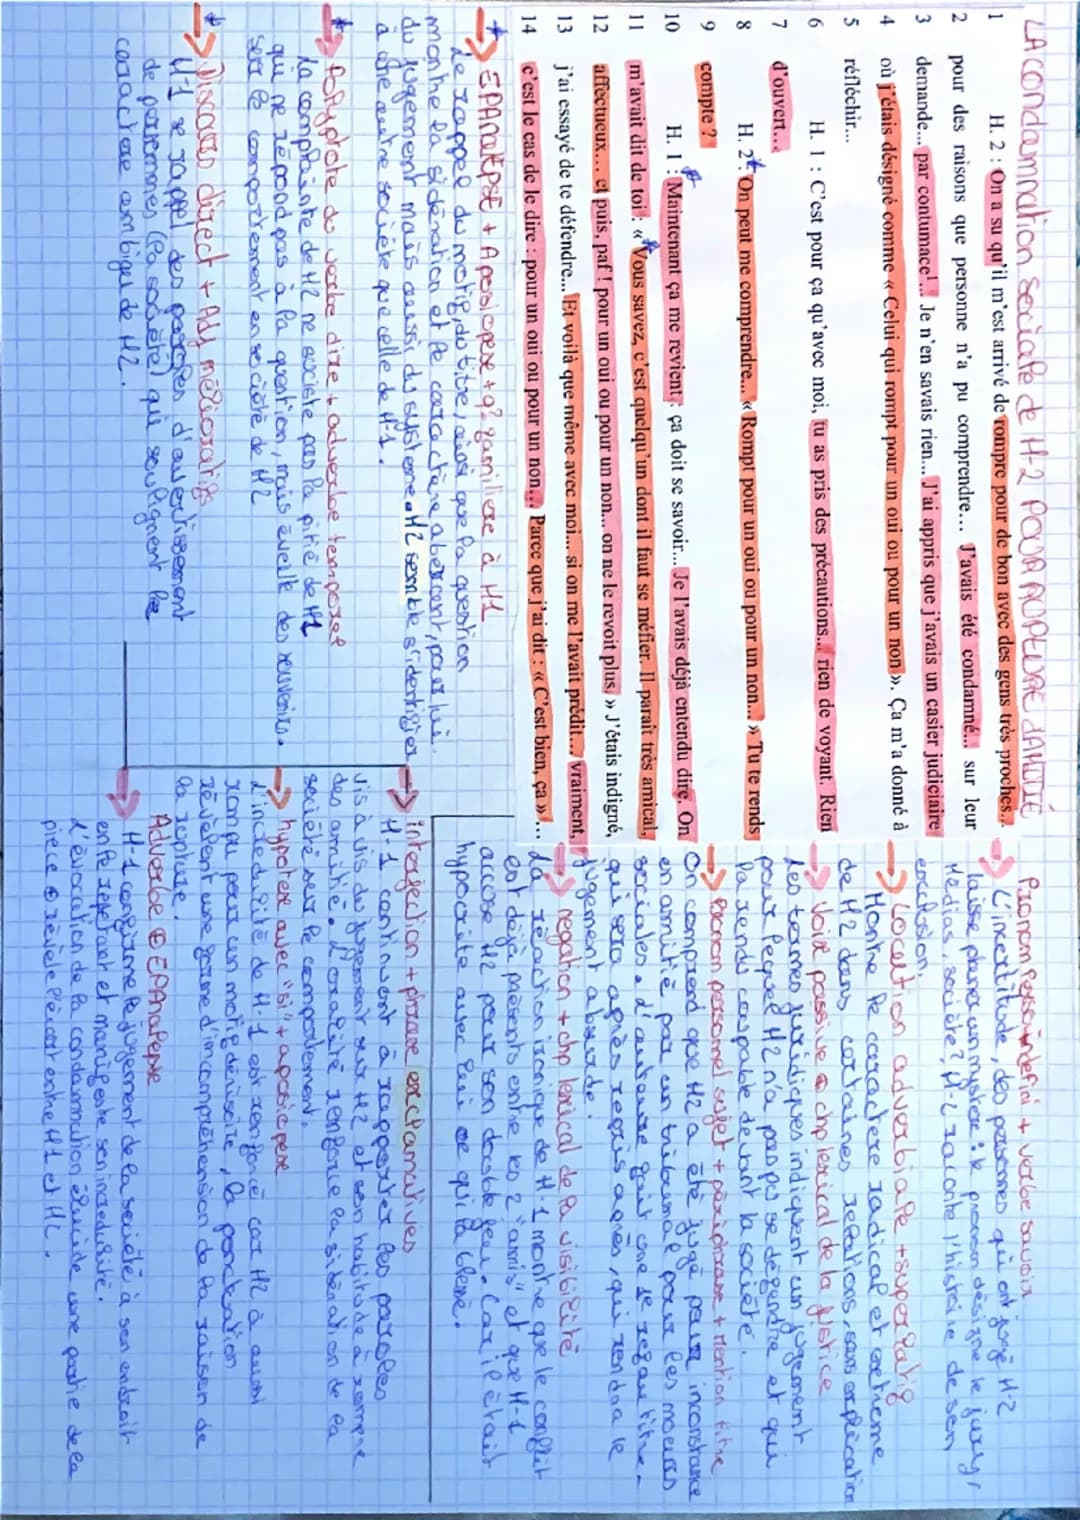 LA condamnation sociale de H-2 POUR RUPTURE d'AMITIÉ
1 H. 2 : On a su qu'il m'est arrivé de rompre pour de bon avec des gens très proches...
2 pour des raisons que personne n'a pu comprendre... J'avais été condamné... sur leur
3 demande... par contumace¹... Je n'en savais rien... J'ai appris que j'avais un casier judiciaire
4 où j'étais désigné comme « Celui qui rompt pour un oui ou pour un non ». Ça m'a donné à
5 réfléchir...
6 H. 1 : C'est pour ça qu'avec moi, tu as pris des précautions... rien de voyant. Rien
7 d'ouvert...
8 H. 2 : On peut me comprendre... « Rompt pour un oui ou pour un non... » Tu te rends
9 compte ?
10 H. 1 : Maintenant ça me revient : ça doit se savoir... Je l'avais déjà entendu dire. On
11 m'avait dit de toi : « Vous savez, c'est quelqu'un dont il faut se méfier. Il paraît très amical,
12 affectueux... et puis, paf ! pour un oui ou pour un non... on ne le revoit plus, » J'étais indigné,
13 j'ai essayé de te défendre... Et voilà que même avec moi... si on me l'avait prédit... vraiment,
14 c'est le cas de le dire : pour un oui ou pour un non... Parce que j'ai dit : « C'est bien, ça »...
→ EPANALEPSE + Aposiopèse + q? familière à H1
Le rappel du motif, du titre, ainsi que la question
montre la sidération et le caractère aberrant, pour lui
du jugement mais aussi du système. H2 semble s'identifier
à une autre société que celle de H-1.
→ Polyptote du verbe dire + adverbe temporel
La complainte de H2 ne suscite pas la pitié de H1
qui ne répond pas à la question, mais éveille des souvenirs.
sur le comportement en société de H2
→ Discours direct + Adj mélioratifs
H-1 se rappel des paroles d'avertissement
de personnes (la société) qui soulignent le
caractère ambigu de H2.
Pronom perso indéfini + verbe savoir
→ L'incertitude, des personnes qui ont jugé H-2
laisse planer un mystère : le pronom désigne le jury,
Médias, société ?, H-2 raconte l'histoire de son
exclusion.
→ Locution adverbiale + superlatif
Montre le caractère radical et extrême
de H2 dans certaines relations, sans explication
→ Voix passive ⊕ chp lexical de la justice
Les termes juridiques indiquent un jugement
pour lequel H2 n'a pas pu se défendre et qui
la rendu coupable devant la société.
→ Pronom personnel sujet + périphrase + Mention titre
On comprend que H2 a été jugé pour inconstance
en amitié par un tribunal pour les moeurs
sociales. d'auteure fait une
qui sera après repris après, qui rendra le
jugement absurde.
→ négation + chp lexical de la visibilité
La réaction ironique de H-1 montre que le conflit
est déjà présents entre les 2 "amis" et que H-1
accuse H2 pour son double jeu. Car il était
hypocrite avec lui ce qui l'a blessé.
→ interjection + phrase exclamatives
H-1 continuent à rapporter les paroles
vis à vis du jugement sur H2 et son habitude à rompre
des amitié. L'oralité renforce la sidération de la
société sur le comportement.
→ hypotexe avec "si" + aposiopèse
L'incrédulité de H-1 est renforcé car H2 à aussi
rompu pour un motif dérisoire, la ponctuation
révèlent une forme d'incompréhension de la raison de
la rupture.
Adverbe ⊕ EPANalepse
→ H-1 confirme le jugement de la société à son endroit
en le répétant et manifeste son incrédulité.
L'évocation de la condamnation élucide une partie de la
pièce ⊕ révèle l'écart entre H1 et H2.